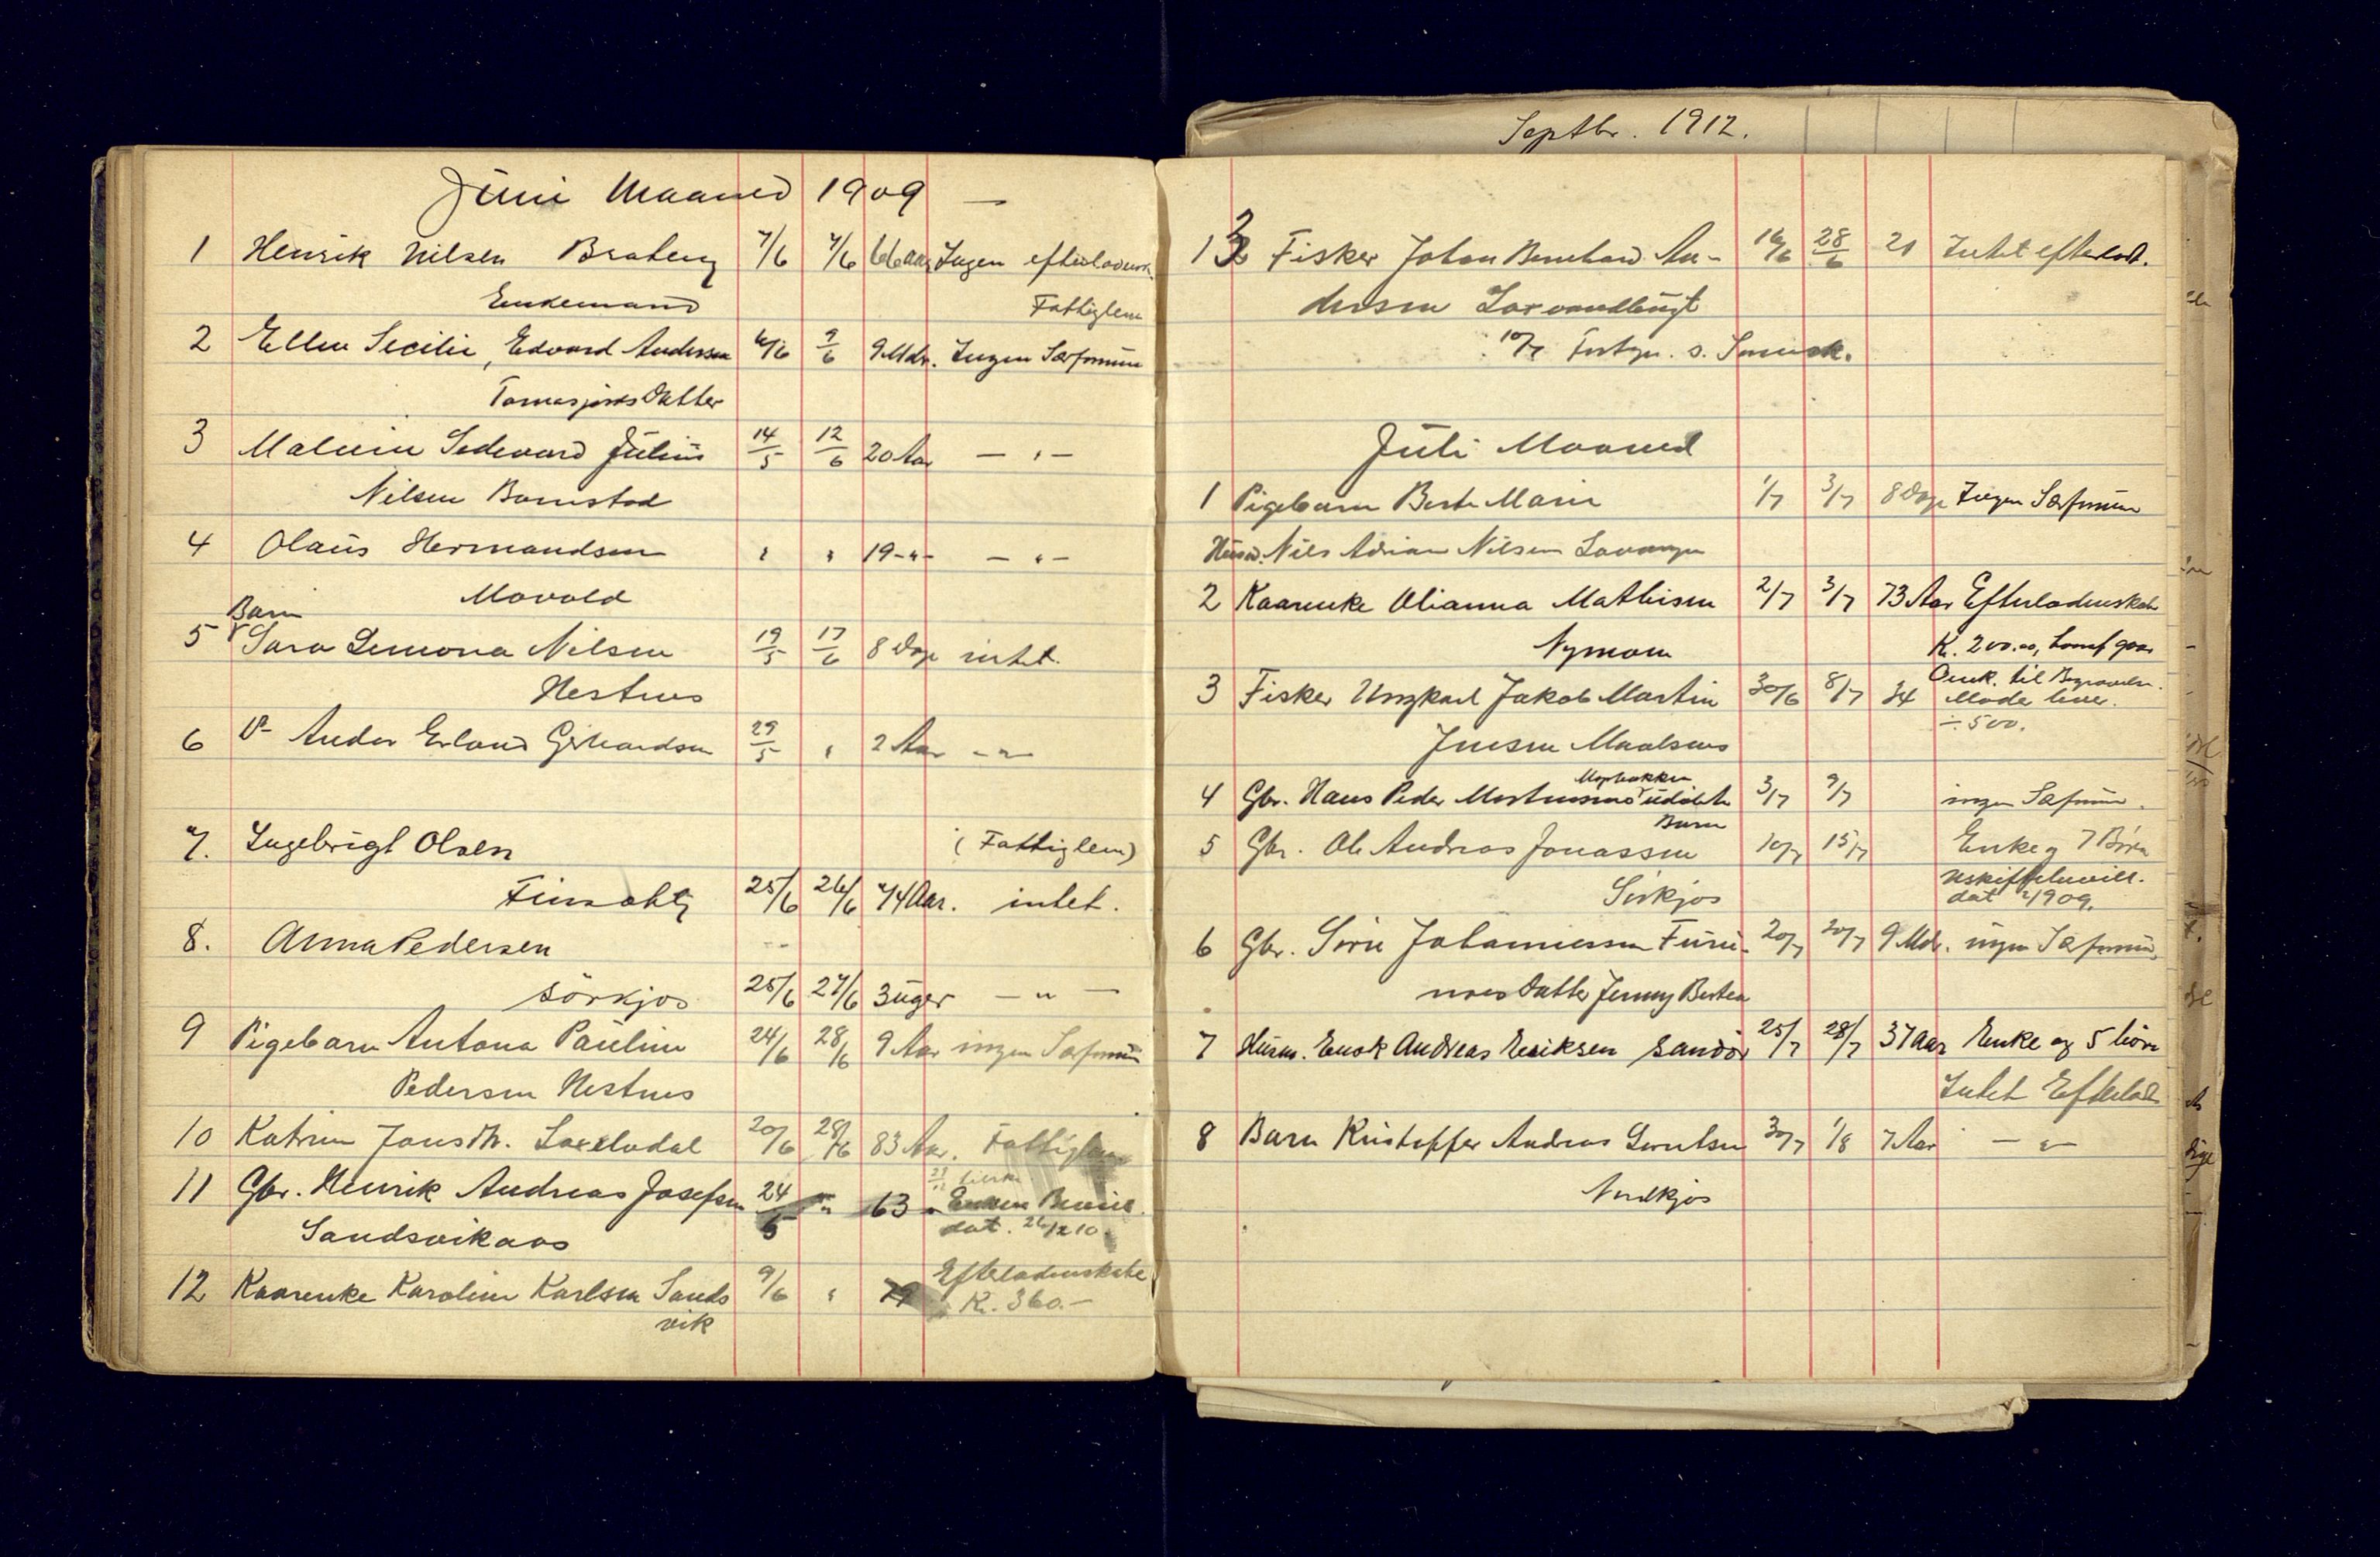 Juni Maaned 1909 —
1 Henrik Nilsen Braberg 7/6 7/6 66 aar Ingen efterladensk.
Enkemand Fattiglem
2 Ellen Secilie, Edvard Andersen 6/6 9/6 9 Mdr. Ingen Særformue
Tomasjords Datter
3 Malvin Sedevard Julius 14/5 12/6 20 Aar — " —
Nilsen Bomstad
4 Olaus Hermandsen " " 19 -"- — " —
Movold
Barn
5 Sara Lemona Nilsen 19/5 17/6 8 Dage intet.
Hestnes
6 Andor Erland Gerhardsen 29/5 " 2 Aar - " -
7. Ingebrigt Olsen (Fattiglem)
25/6 26/6 74 Aar. intet.
8. Anna Pedersen
Sörkjos 25/6 27/6 3 uger — " —
9 Pigebarn Antona Pauline 24/6 28/6 9 Aar ingen Særformue
Pedersen Hestnes
10 Katrine Jonsdtr. 20/6 28/6 83 Aar. Fattiglem
11 Gbr. Henrik Andreas Josefsen 24/5 " 63 " Enken Bevill.
Sandsvikaas dat.
12 Kaarenke Karoline Karlsen Sands 9/6 " 79 Efterladenskabe
vik Kr. 360.—
Septbr. 1912.
13 Fisker Johan Bernhard An- 16/6 28/6 21 Intet efterladt.
dersen
10/7
Juli Maaned
1 Pigebarn Berte Marie 1/7 3/7 8 Dage Ingen Særformue
Husm. Nils Adrian Nilsen
2 Kaarenke Olianna Mathisen 2/7 3/7 73 Aar Efterladenskab
Nymoen Kr. 200.00, som gaar
3 Fisker Ungkarl Jakob Martin 30/6 8/7 34 Omk. til Begravelse.
Moder lever.
Jensen Maalsnes ÷ 500.
4 Gbr. Hans Peder Mortensens udöbte 3/7 9/7 ingen Særformue.
Barn
5 Gbr. Ole Andreas Jonassen 10/7 15/7 Enke og 7 Börn
Sörkjos uskiftebevill.
dat 1909.
6 Gbr. Sörn Johannessen Furu- 20/7 20/7 9 Mdr. ingen Særformue
nes Datter Jenny Bertea
7 Husm. Enok Andreas Eriksen Sandör 25/7 28/7 37 Aar Enke og 5 börn
Intet Efterladt
8 Barn Kristoffer Andreas Lorentsen 30/7 1/8 7 Aar — " —
Nordkjos